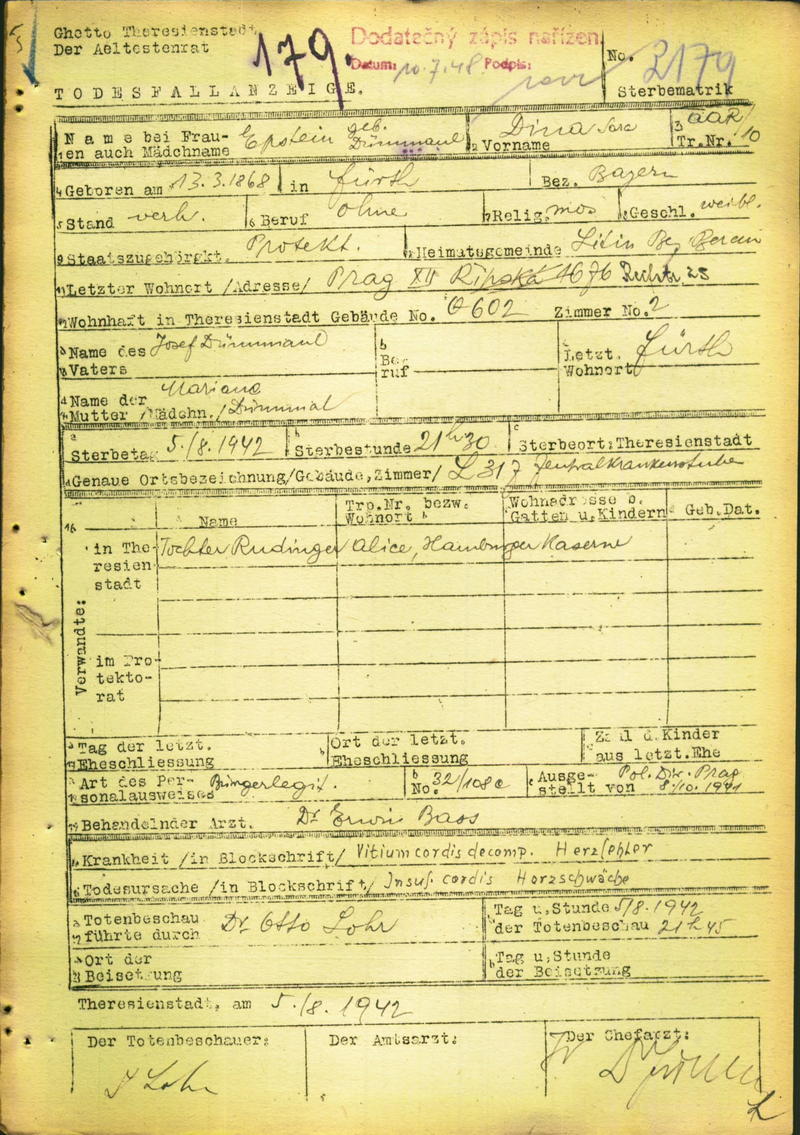 Ghetto Theresienstadt
Der Aeltestenrat
179.
Dodatečný zápis nařízen
Datum: 10.7.48 Podpis:
No. 3179
Sterbematrik
TODESFALLANZEIGE.
Name bei Frauen auch Mädchname Epstein geb. Dümmaul
Vorname Dina Sara
Tr.Nr. AAR/10
Geboren am 13.3.1868 in Fürth Bez. Bayern
Stand verh. Beruf ohne Relig. mos Geschl. weibl.
Staatszugehörgkt. Protekt. Heimatsgemeinde Litin Bez Beraun
Letzter Wohnort /Adresse/ Prag XII Ripská 1676
Wohnhaft in Theresienstadt Gebäude No. Q 602 Zimmer No. 2
Name des Vaters Josef Dümmaul
Beruf
Letzt. Wohnort Fürth
Name der Mutter /Mädchn./
Sterbetag 5./8. 1942 Sterbestunde 21h30 Sterbeort: Theresienstadt
Genaue Ortsbezeichnung/Gebäude, Zimmer/ L 317 Zentralkrankenstube
Verwandte:
Name
Trp.Nr. bezw. Wohnort
Wohnadresse b. Gatten u. Kindern
Geb.Dat.
in Theresienstadt Tochter Rudinger Alice, Hamburger Kaserne
im Protektorat
Tag der letzt. Eheschliessung
Ort der letzt. Eheschliessung
Zahl d. Kinder aus letzt. Ehe
Art des Personalausweises Bürgerlegit. No. 32/108 Ausgestellt von Pol. Dir. Prag 8./10. 1941
Behandelnder Arzt. Dr Erwin Bass
Krankheit /in Blockschrift/ Vitium cordis decomp. Herzfehler
Todesursache /in Blockschrift/ Insuf. cordis Herzschwäche
Totenbeschau führte durch Dr. Otto Lohr
Tag u. Stunde der Totenbeschau 5/8. 1942 21h45
Ort der Beisetzung
Tag u. Stunde der Beisetzung
Theresienstadt, am 5./8. 1942
Der Totenbeschauer:
Der Amtsarzt:
Der Chefarzt:
Lohr